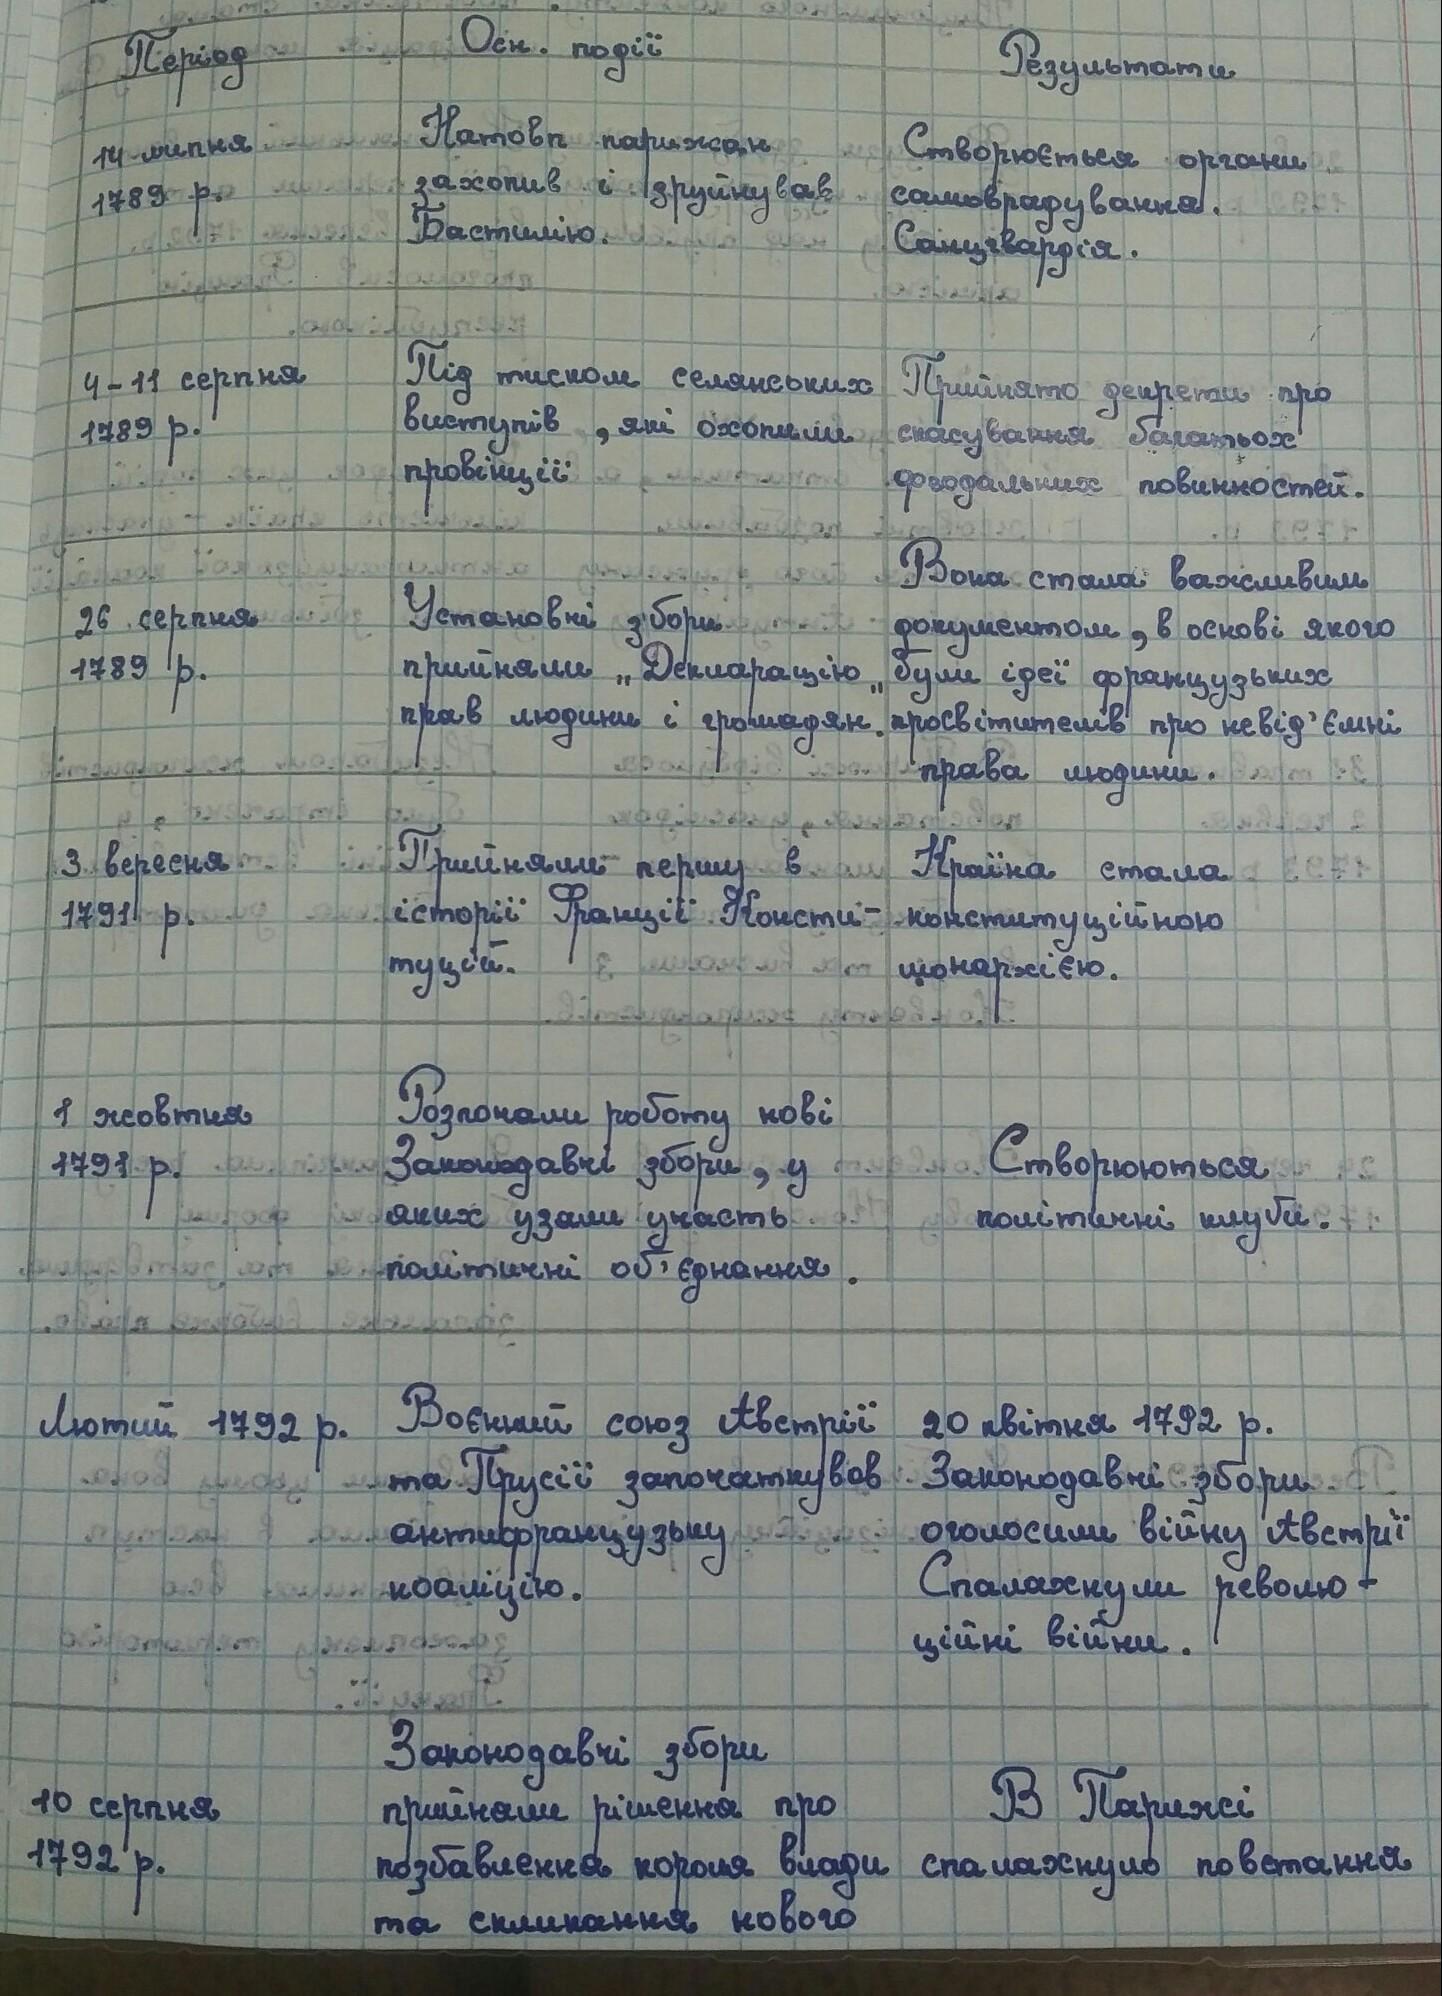 Період
Осн. події
Результати
14 липня
1789 р.
Натовп парижан
захопив і зруйнував
Бастилію.
Створюється органи
самоврядування.
4-11 серпня
1789 р.
Під тиском селянських
виступів, які охопили
провінції
Прийнято декрети про
скасування багатьох
феодальних повинностей.
26 серпня
1789 р.
Установчі збори
прийняли „Декларацію
прав людини і громадян„.
Вона стала важливим
документом, в основі якого
були ідеї французьких
просвітителів про невід'ємні
права людини.
3 вересня
1791 р.
Прийняли першу в
історії Франції Консти-
туцій.
Країна стала
конституційною
монархією.
1 жовтня
1791 р.
Розпочали роботу нові
Законодавчі збори, у
яких узали участь
політичні об'єднання.
Створюються
політичні клуби.
Лютий 1792 р.
Воєнний союз Австрії
та Прусії започаткував
антифранцузьку
коаліцію.
20 квітня 1792 р.
Законодавчі збори
оголосили війну Австрії
Спалахнули револю-
ційні війни.
10 серпня
1792 р.
Законодавчі збори
прийняли рішення про
позбавлення короля влади
та скликання нового
В Парижі
спалахнуло повстання